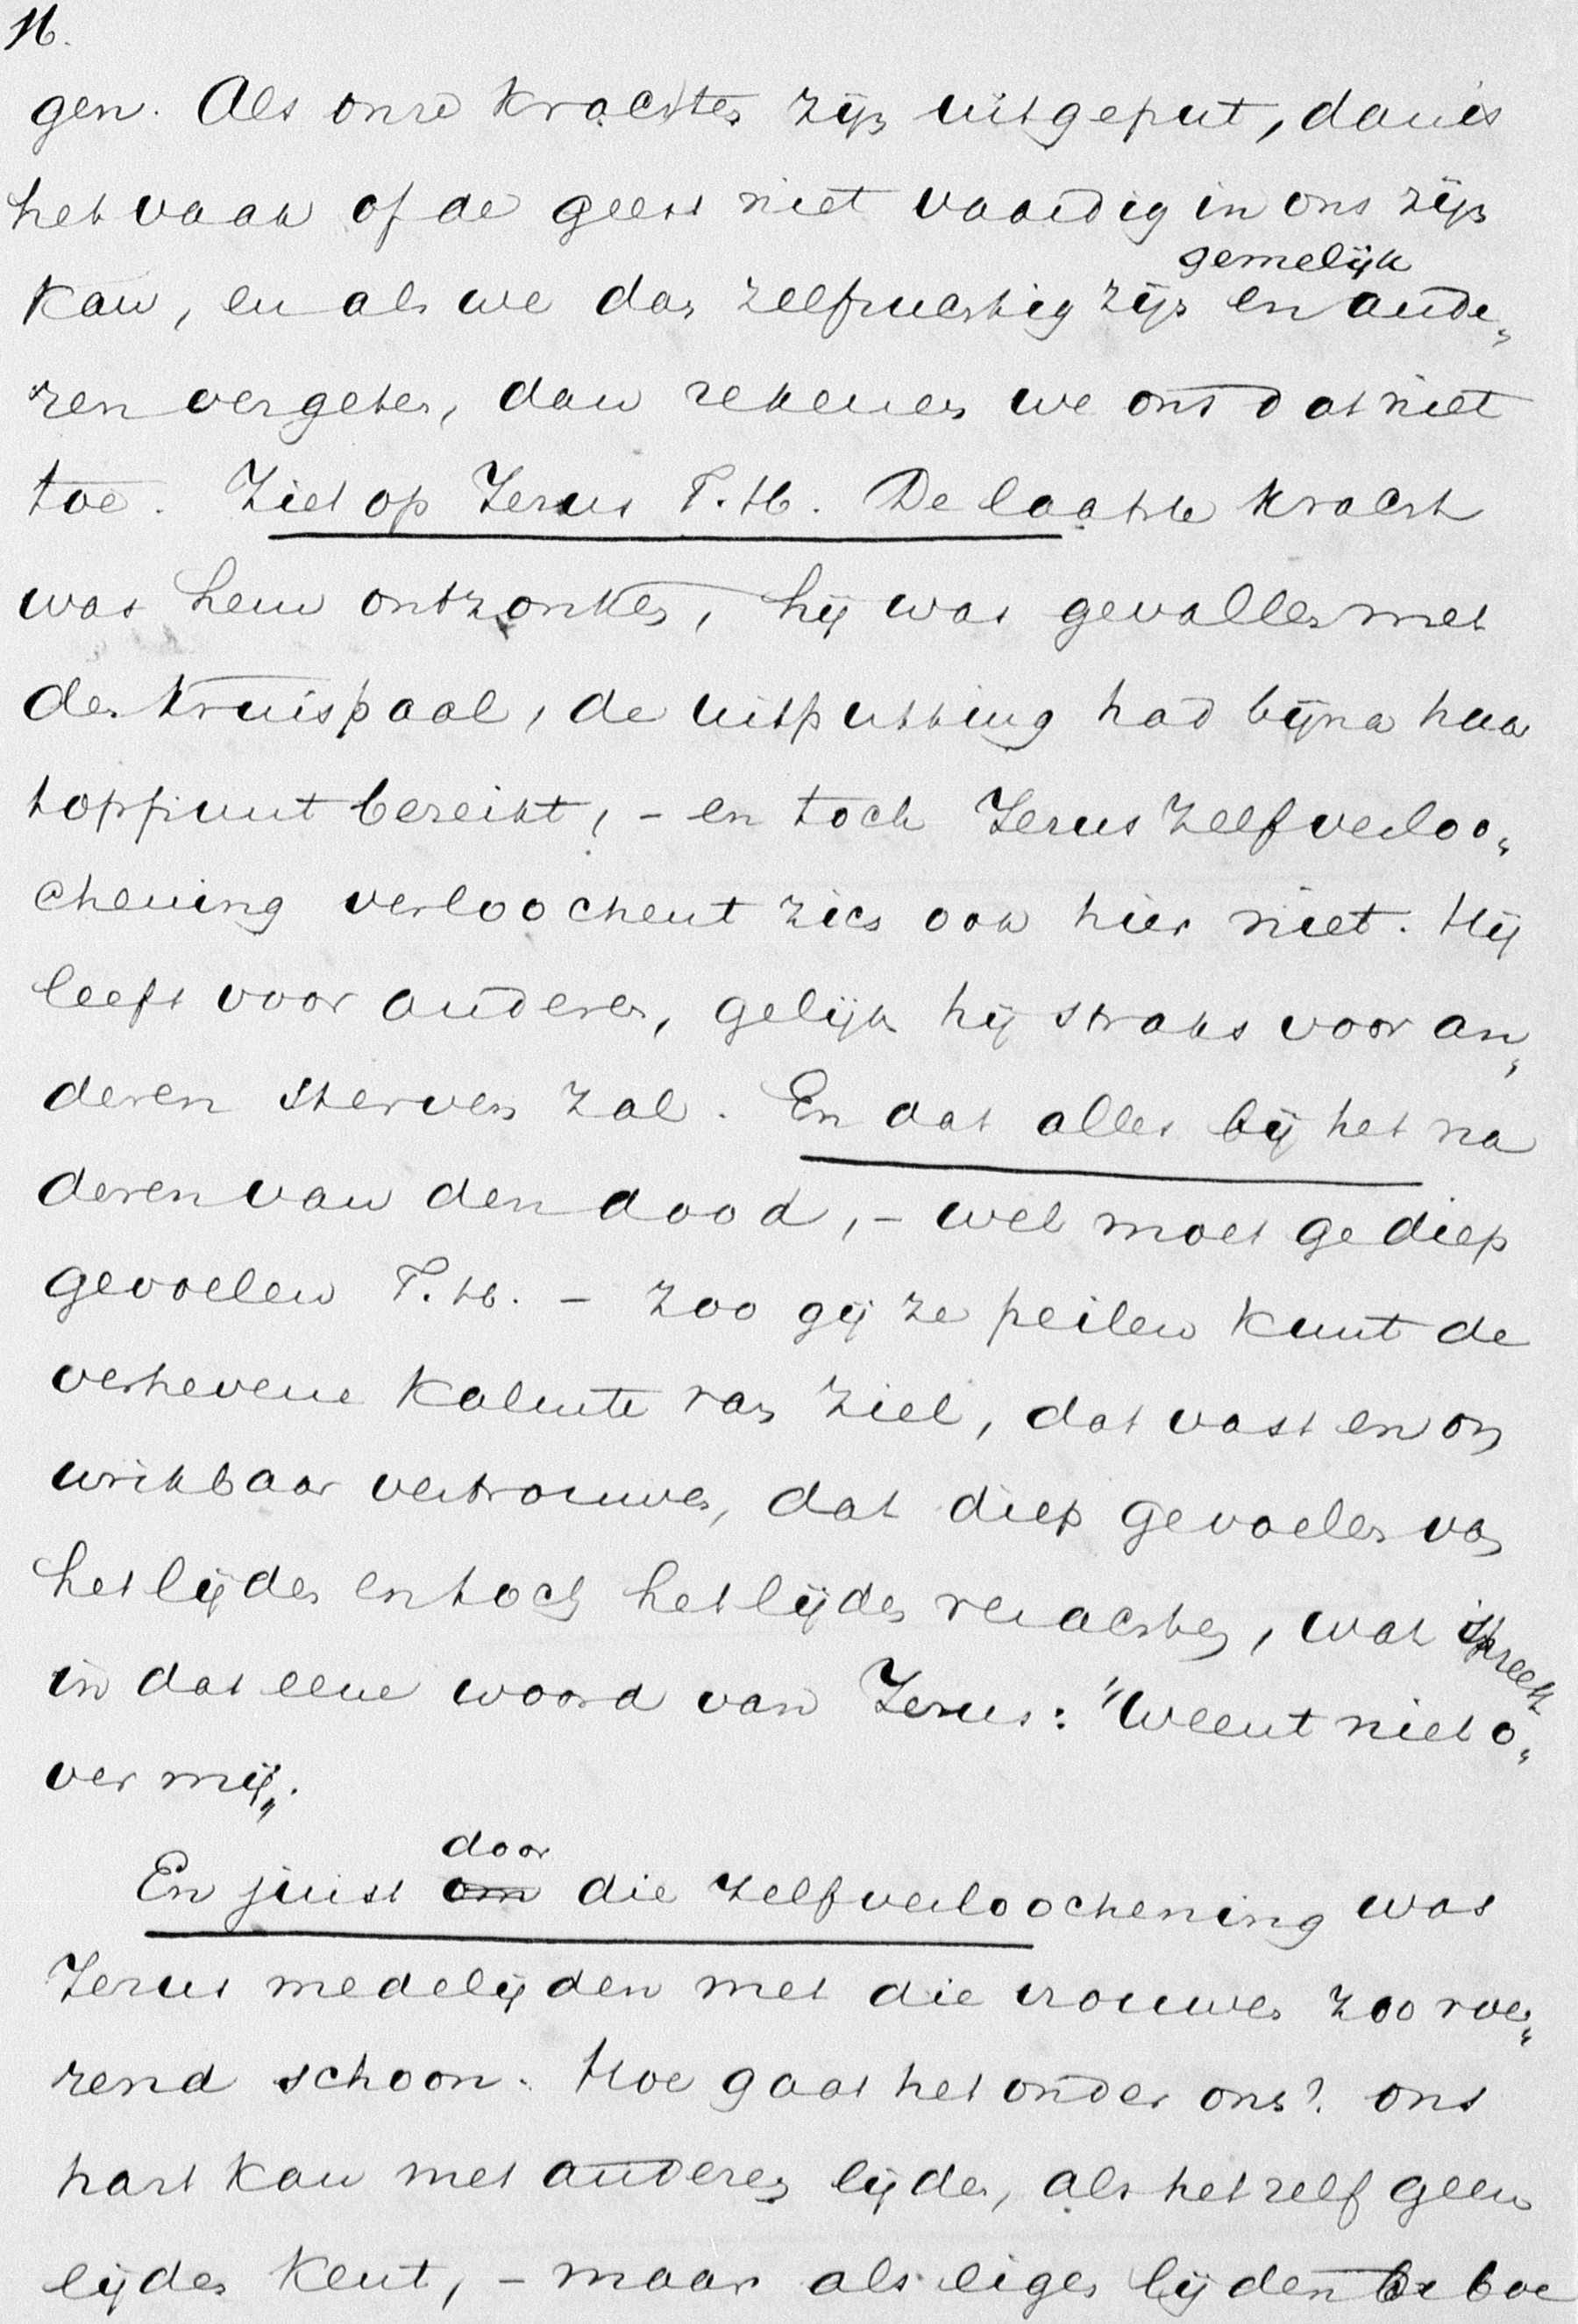 16.
gen. Als onze krachten zijn uitgeput, dan is
het vaak of de geest niet vaardig in ons zijn
gemelijk
kan, en als we dan zelfzuchtig zijn en ande„
ren vergeten, dan rekenen we ons dat niet
toe. Ziet op Jezus T. H. De laatste kracht
was hem ontzonken, hij was gevallen met
den kruispaal, de uitputting had bijna haar
toppunt bereikt, - en toch Jezus zelfverloo„
chening verloochent zich ook hier niet. Hij
leeft voor anderen, gelijk hij straks voor an„
deren sterven zal. En dat alles bij het na
deren van den dood, - wel moet ge diep
gevoelen T. H. - zoo gij ze peilen kunt de
verhevene kalmte van ziel, dat vast en on
wrikbaar vertrouwen, dat diep gevoelen van
het lijden en toch het lijden verachten, wat spreekt
in dat eene woord van Jezus: "Weent niet o„
ver mij„.
door
En juist om die zelfverloochening was
Jezus medelijden met die vrouwen zoo roe„
rend schoon. Hoe gaat het onder ons? ons
hart kan met anderen lijden, als het zelf geen
lijden kent, - maar als eigen lijden be boe